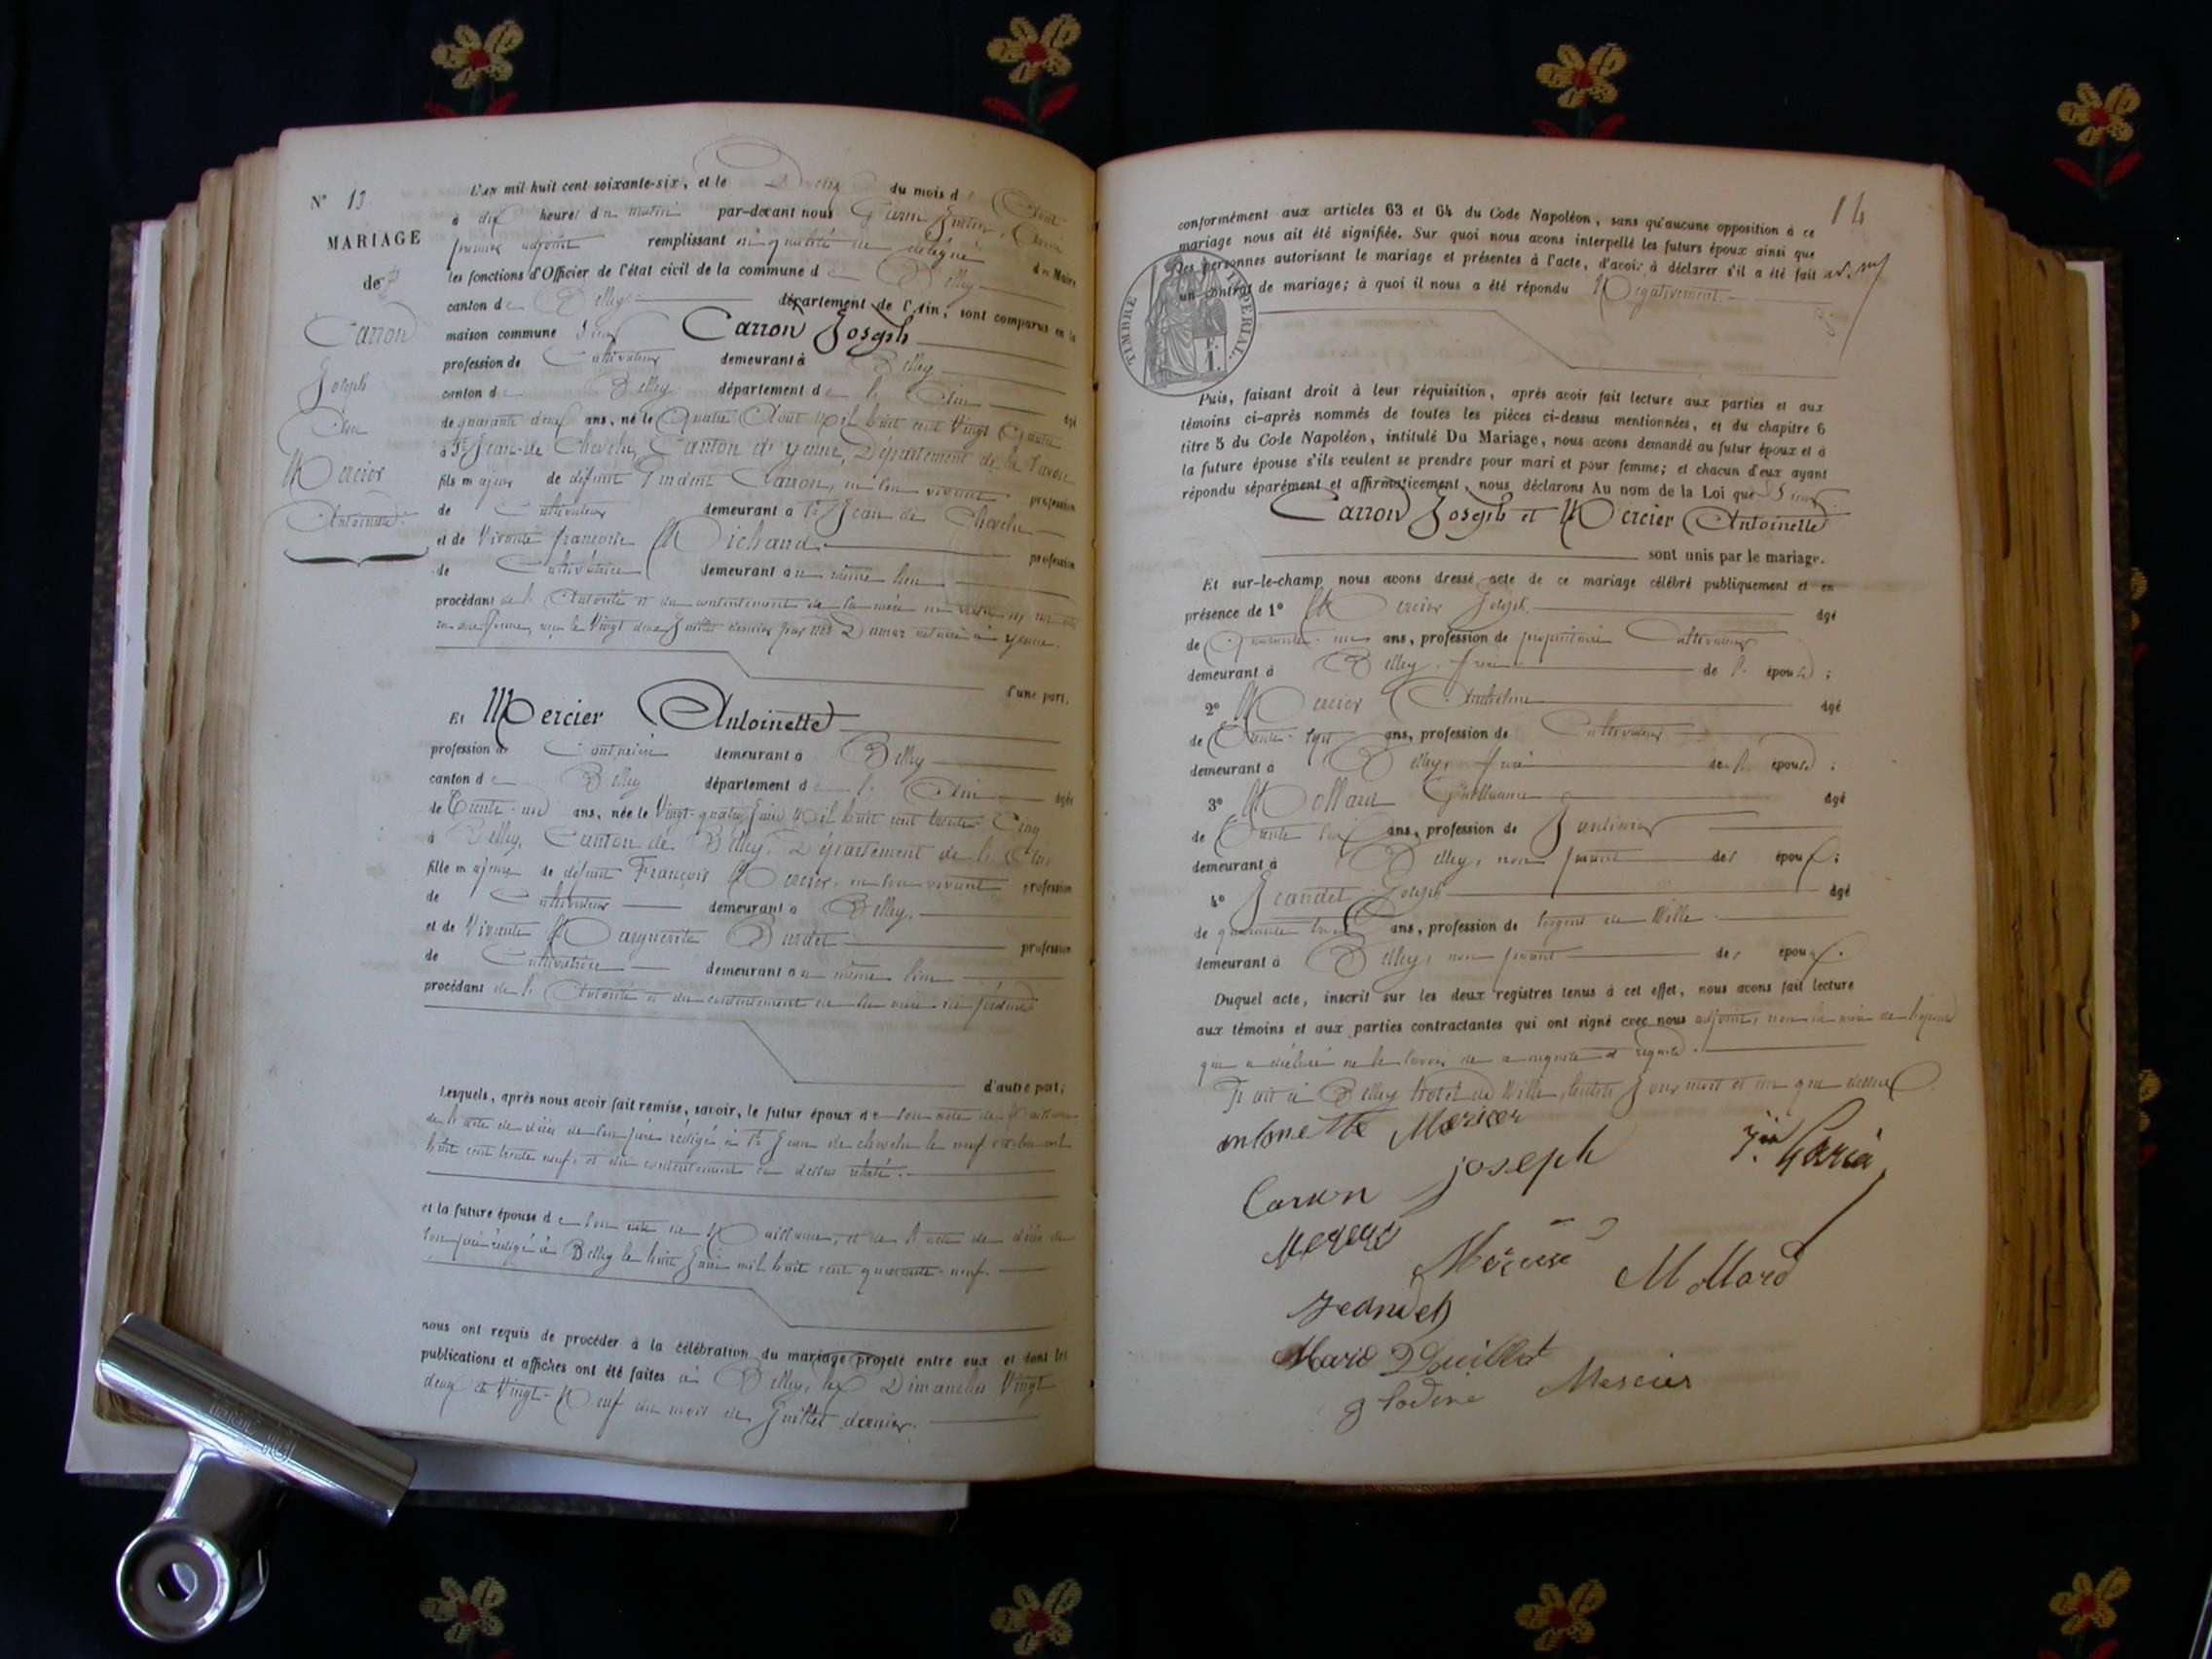 N° 13
MARIAGE
de
Carron
Joseph
Et
Mercier
Antoinette
L'an mil huit cent soixante-six, et le Deux du mois d' Août
à dix heures du matin par-devant nous
premier adjoint remplissant en qualité de délégué du Maire
les fonctions d'Officier de l'état civil de la commune de Belley
canton de Belley département de l'Ain, sont comparus en la
maison commune Sieur Carron Joseph
profession de Cultivateur demeurant à Belley
canton de Belley département de l'Ain âgé
de quarante deux ans, né le Quatre Août Mil huit cent Vingt Quatre
à St Jean-de Chevelu, Canton de Yenne, Département de la Savoie
fils majeur de défunt Carron, en son vivant profession
de Cultivateur demeurant à St Jean de Chevelu
et de Vivante françoise Michaud profession
de Cultivatrice demeurant au même lieu
procédant de l'Autorité et du consentement de sa mère
le Vingt deux Juillet dernier par Me Dumaz notaire à Yenne.
d'une part.
Et Mercier Antoinette
profession de Couturière demeurant à Belley
canton de Belley département de l'Ain âgée
de Trente-un ans, née le Vingt-quatre Juin Mil huit cent trente Cinq
à Belley, Canton de Belley, Département de l'Ain
fille majeure de défunt François Mercier, en son vivant profession
de Cultivateur demeurant à Belley,
et de Vivante Marguerite Burdet profession
de Cultivatrice demeurant au même lieu
procédant de l'Autorité et du consentement de sa mère ici présente
d'autre part;
Lesquels, après nous avoir fait remise, savoir, le futur époux de son acte de Naissance
de l'acte de décès de son père rédigé à St Jean de chevelu le neuf
huit cent trente neuf, et du consentement ci dessus relaté.
et la future épouse de son acte de Naissance, et de l'acte de décès de
son père rédigé à Belley le huit Juin mil huit cent quarante-neuf.
nous ont requis de procéder à la célébration du mariage projeté entre eux et dont les
publications et affiches ont été faites à Belley, les Dimanches Vingt
deux et Vingt-Neuf du mois de Juillet dernier.
14
conformément aux articles 63 et 64 du Code Napoléon, sans qu'aucune opposition à ce
mariage nous ait été signifiée. Sur quoi nous avons interpellé les futurs époux ainsi que
les personnes autorisant le mariage et présentes à l'acte, d'avoir à déclarer s'il a été fait
un contrat de mariage; à quoi il nous a été répondu Négativement.
TIMBRE IMPÉRIAL.
F. 1.
Puis, faisant droit à leur réquisition, après avoir fait lecture aux parties et aux
témoins ci-après nommés de toutes les pièces ci-dessus mentionnées, et du chapitre 6
titre 5 du Code Napoléon, intitulé Du Mariage, nous avons demandé au futur époux et à
la future épouse s'ils veulent se prendre pour mari et pour femme; et chacun d'eux ayant
répondu séparément et affirmativement, nous déclarons Au nom de la Loi que Sieur
Carron Joseph et Mercier Antoinette
sont unis par le mariage.
Et sur-le-champ nous avons dressé acte de ce mariage célébré publiquement et en
présence de 1° Mercier Joseph âgé
de Quarante-un ans, profession de propriétaire Cultivateur
demeurant à Belley, frère de l'épouse;
2° Mercier Anthelme âgé
de Trente-sept ans, profession de Cultivateur
demeurant à Belley, frère de l'épouse;
3° Mollard Guillaume âgé
de Trente six ans, profession de Jardinier
demeurant à Belley, non parent des époux;
4° Jeandet Joseph âgé
de quarante trois ans, profession de Sergent de Ville
demeurant à Belley, non parent des époux.
Duquel acte, inscrit sur les deux registres tenus à cet effet, nous avons fait lecture
aux témoins et aux parties contractantes qui ont signé avec nous adjoint, non la mère de l'épouse
qui a déclaré ne le savoir de ce requise et
Fait à Belley Hotel de Ville, lesdits Jour mois et an que dessus.
antonette Mercier
Carron joseph
Mercier
Mollard
Jeandet
Marie Douillet
Mercier